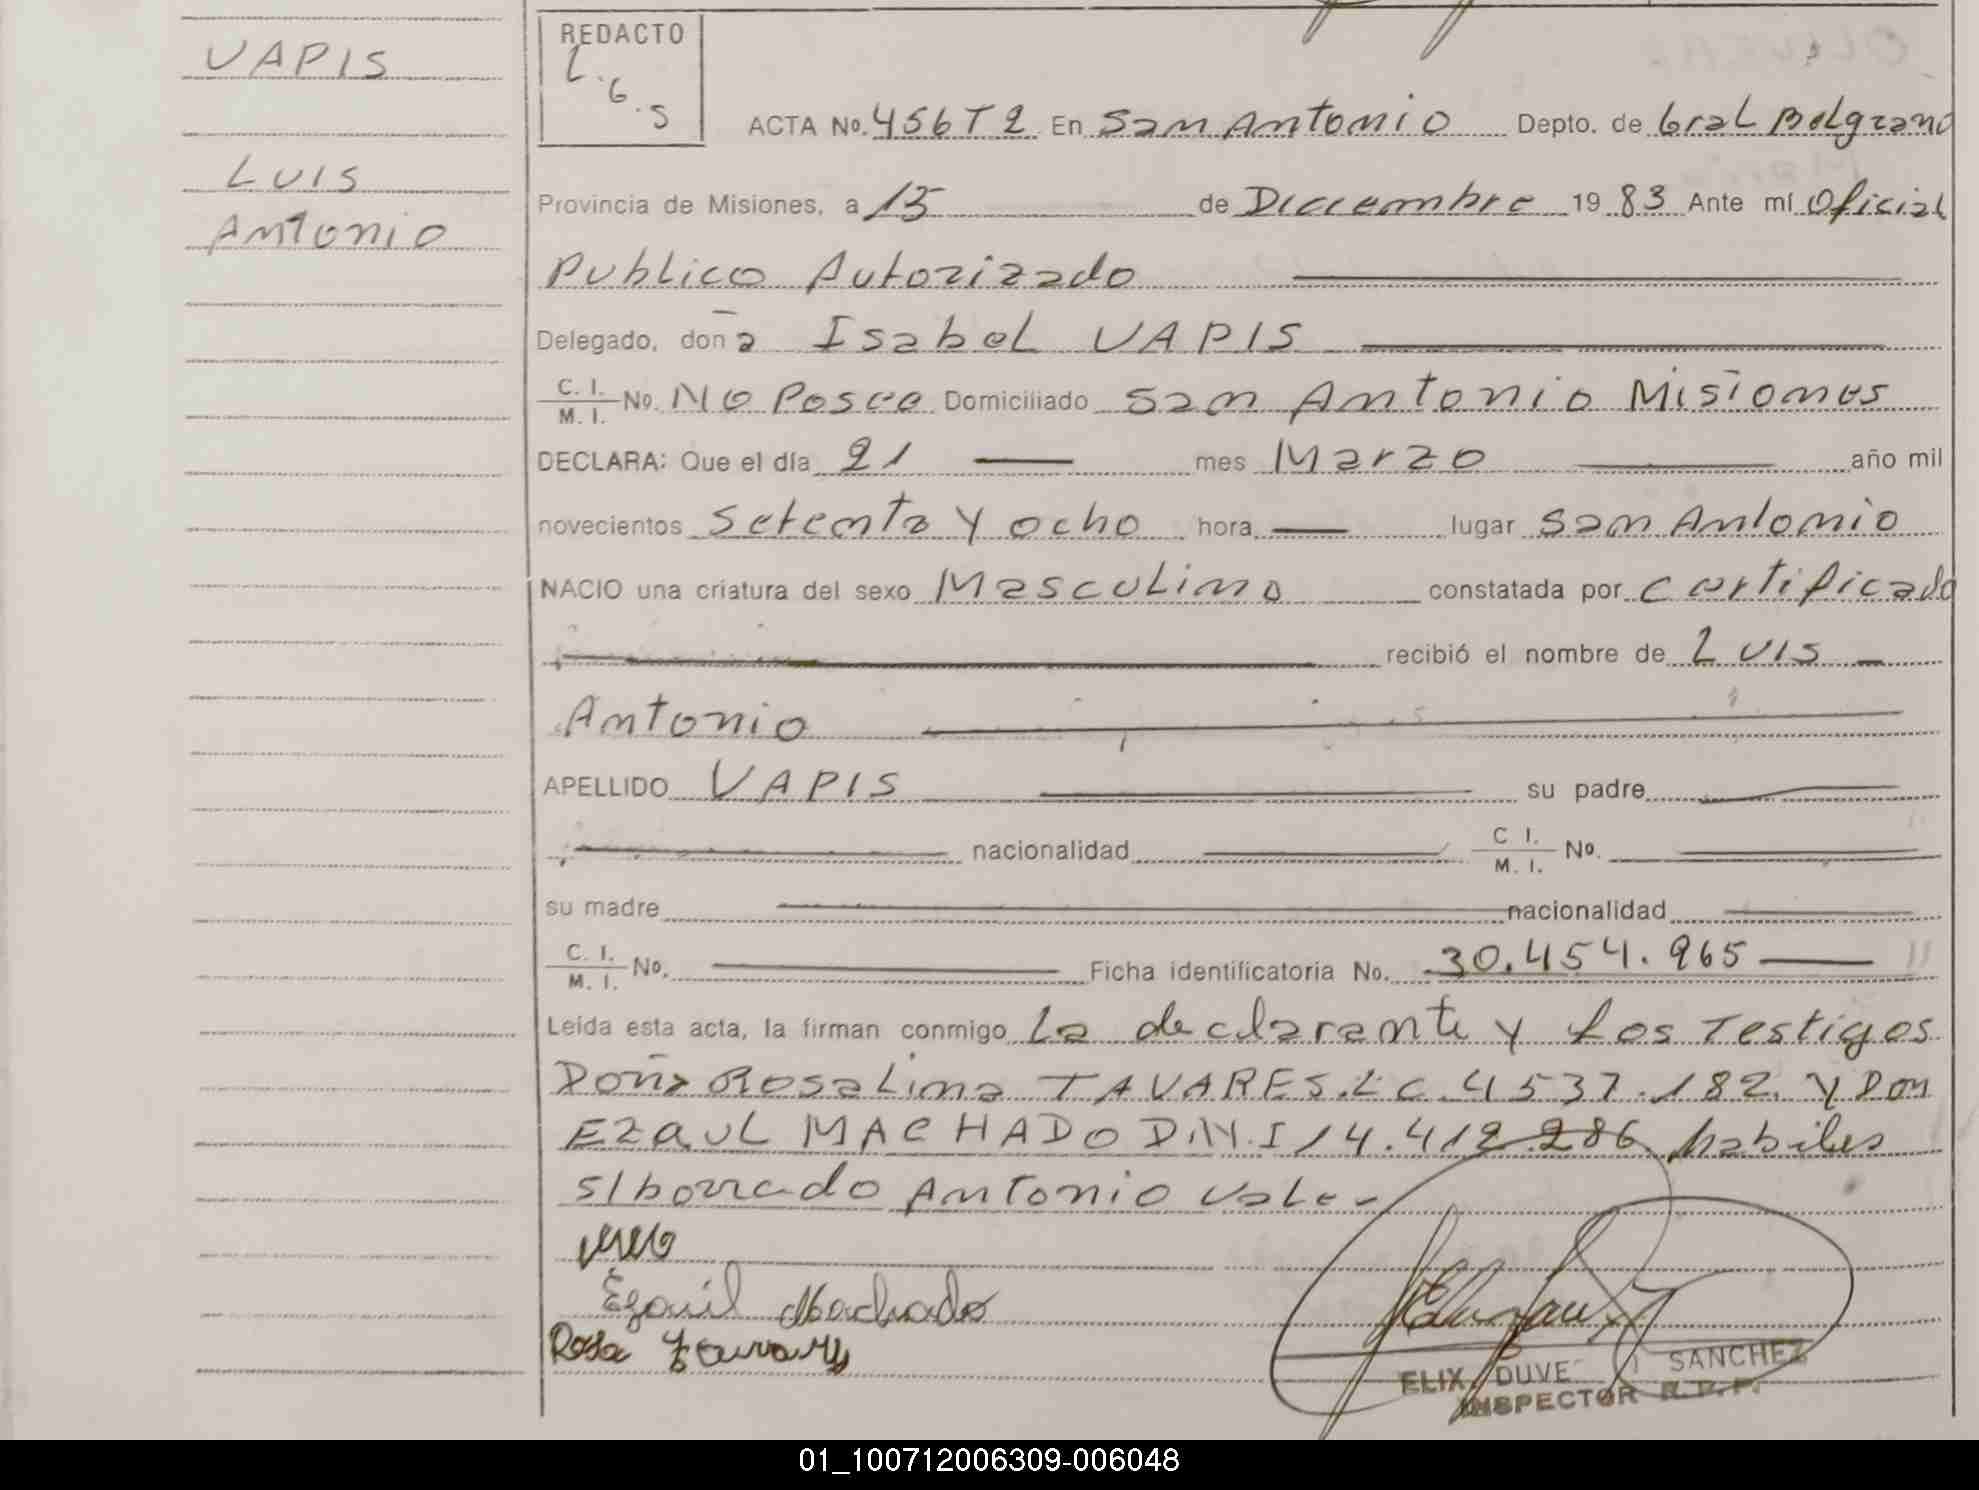 VAPIS
LUIS
Antonio
REDACTO
L.G.S
ACTA No. 456T2 En San Antonio Depto. de Gral Belgrano
Provincia de Misiones, a 15 de Diciembre 1983 Ante mí Oficial
Publico Autorizado
Delegado, doña Isabel VAPIS
C. I. / M. I. No. No Posee Domiciliado San Antonio Misiones
DECLARA: Que el día 21 mes Marzo año mil
novecientos Setenta y ocho hora lugar San Antonio
NACIO una criatura del sexo Masculino constatada por certificado
recibió el nombre de Luis
Antonio
APELLIDO VAPIS su padre
nacionalidad C I. / M. I. No.
su madre nacionalidad
C. I. / M. I. No. Ficha identificatoria No. 30.454.965
Leída esta acta, la firman conmigo La declarante y Los Testigos
Doña Rosalina TAVARES.L C.4537.182. y Don
EZAUL MACHADO D.N.I 14.412.286 habiles
s/borrado Antonio Vale-
Ezauil Machado
Rosa Tavares
SANCHEZ
INSPECTOR R.P.P.
01_100712006309-006048